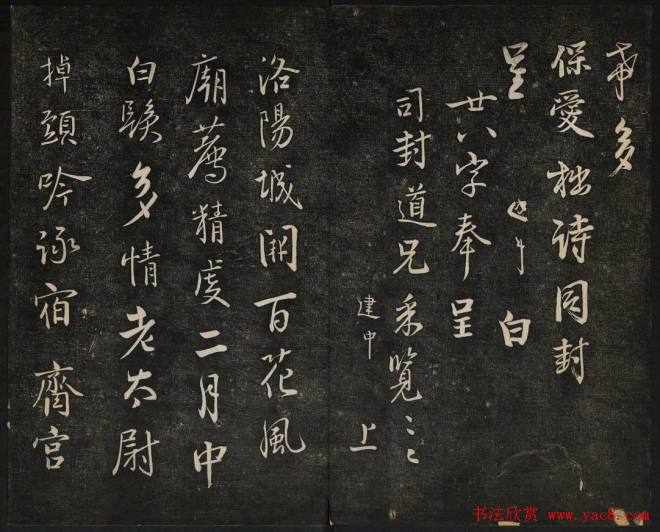 希多
保愛拙詩同封
呈 建中白
廿八字奉呈
司封道兄采覽〻
建中 上
洛陽城開百花風
廟薦精虔二月中
白髮多情老太尉
掉頭吟詠宿齋宮
书法欣赏 www.yac8.com